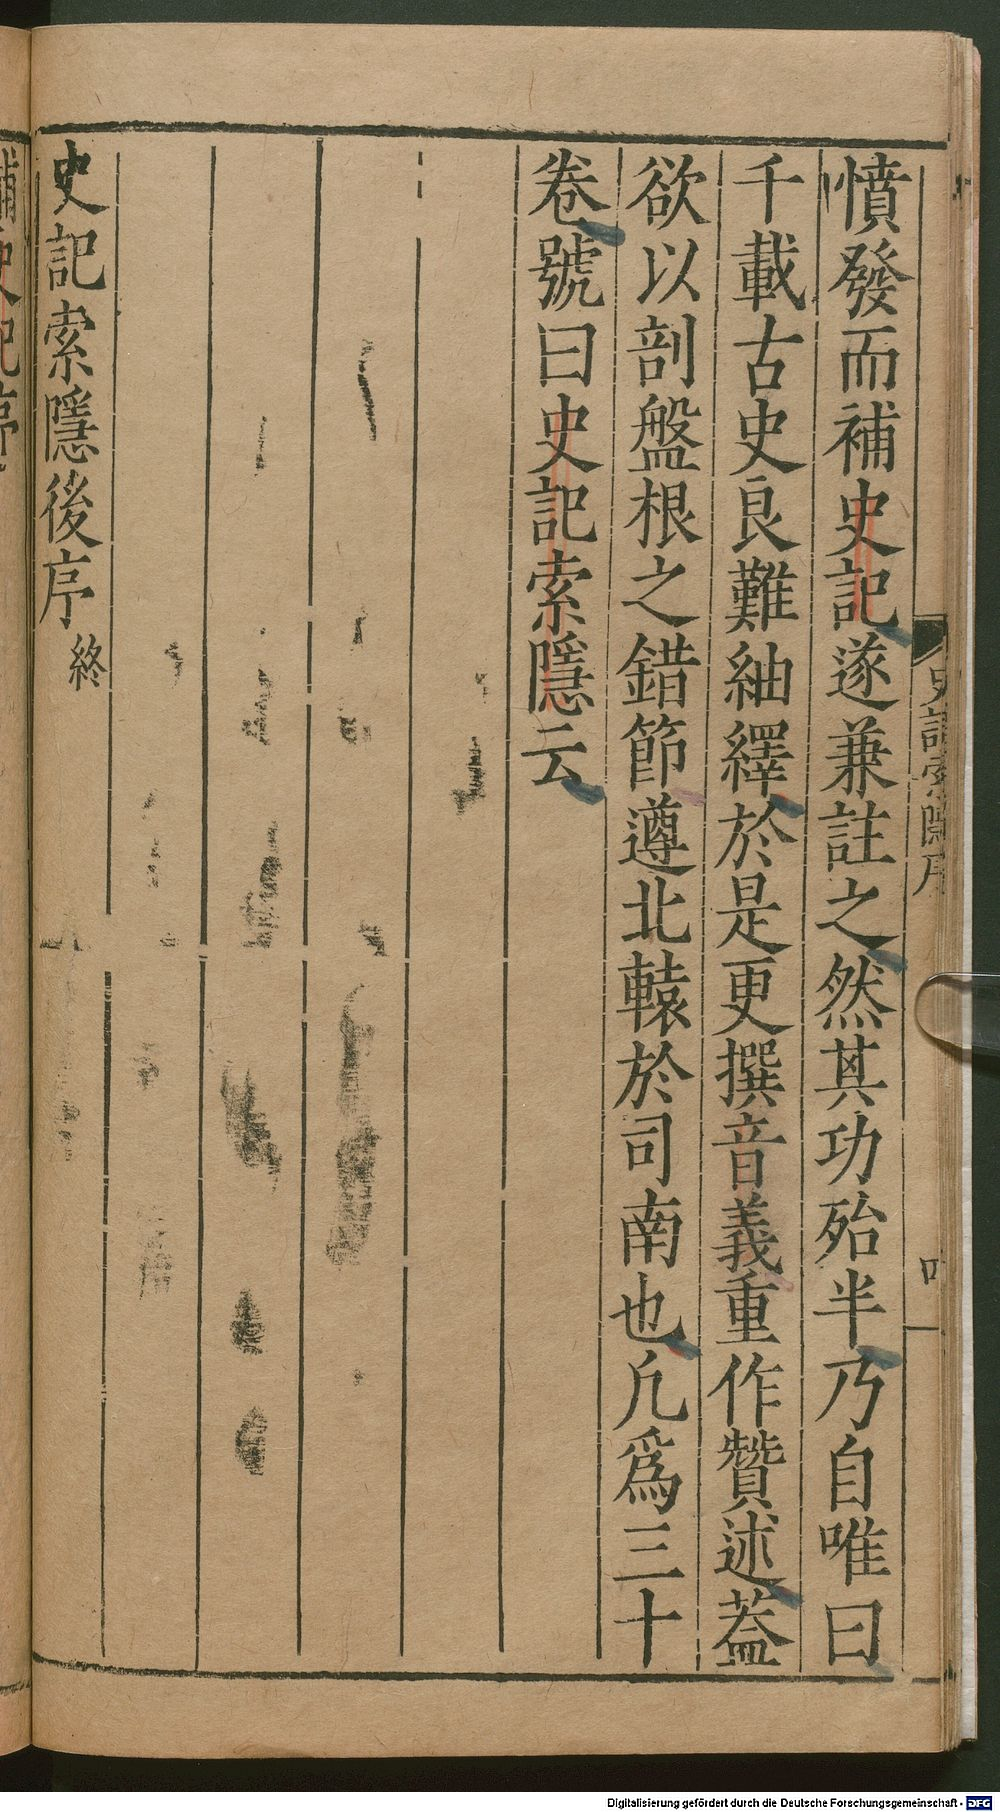 憤發而補史記遂兼註之然其功殆半乃自唯曰
千載古史良難紬繹於是更撰音義重作贊述蓋
欲以剖盤根之錯節遵北轅於司南也凢爲三十
卷號曰史記索隱云
史記索隱後序終
史記索隱序
補史記序
Digitalisierung gefördert durch die Deutsche Forschungsgemeinschaft - DFG